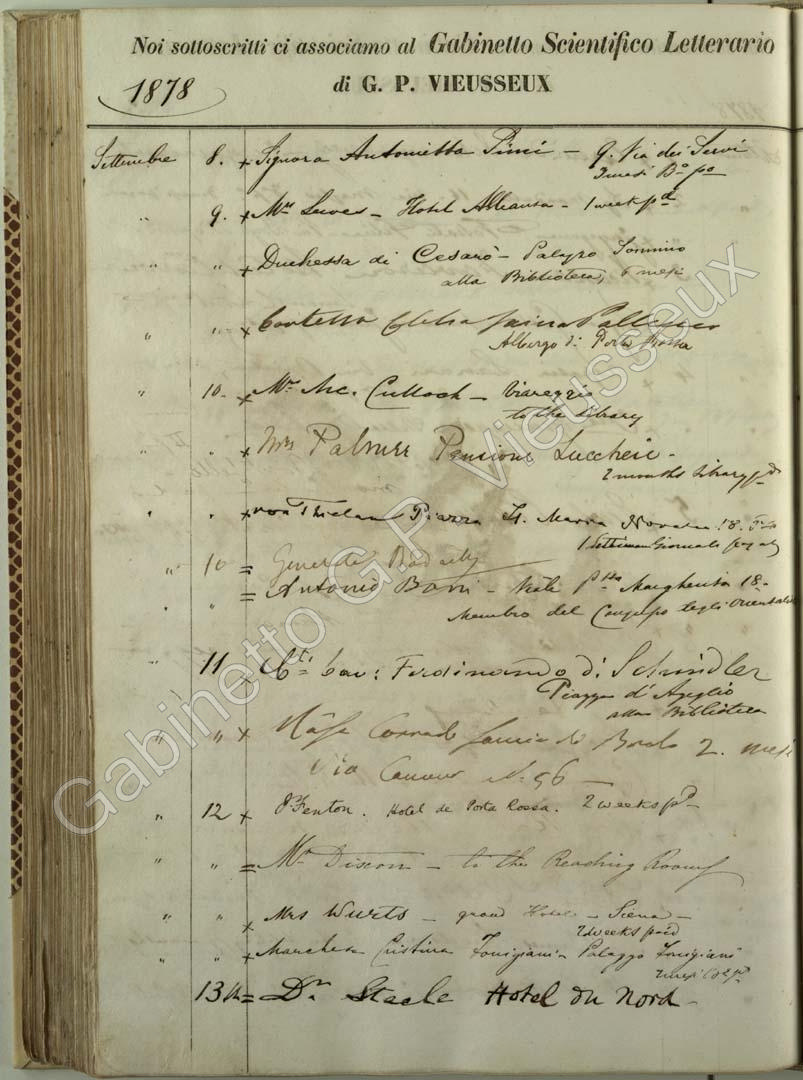 Noi sottoscritti ci associamo al Gabinetto Scientifico Letterario
di G. P. VIEUSSEUX
1878
Settembre 8. x Signora Antonietta – 9. Via dei Servi
" 9. x Mrs – Hotel – 1 week pd
" " x Duchessa di Cesarò – Palazzo Sonnino
alla Biblioteca, 6 mesi
" " x Contessa
Albergo di Porta Rossa
" 10. x Mr Mc. Culloch – Viareggio
to the Library
" " x Mrs Palmer Pensione Lucchesi –
2 months Library pd
" " x von Piazza S. Maria Novella 18.
1 Settimana Giornali
" 10 = General
" " = Antonio – Margherita 18 –
Membro del degli Orientalisti
" 11 x Cav: Ferdinando di Schindler
Piazza d'Azeglio
alla Biblioteca
" " x Corrado 2. mesi
Via Cavour No 56 –
" 12 x Dr Fenton. Hotel de Porta Rossa. 2 weeks pd –
" " = Mr – to the Reading Rooms
" " x Mrs Wurts – grand Hotel – Siena –
2 weeks paid
" " x Marchesa Cristina Torrigiani – Palazzo Torrigiani
13th = Dr Steele Hotel du Nord –
Gabinetto G.P. Vieusseux